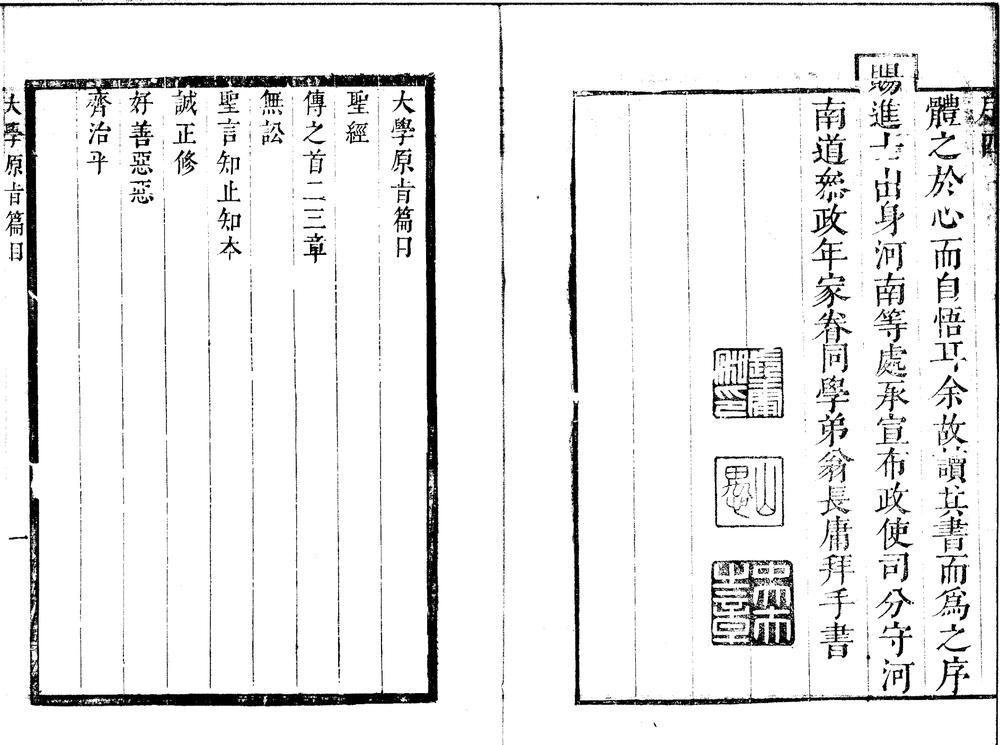 序 四
體之於心而自悟耳余故讀其書而爲之序
賜進士出身河南等處承宣布政使司分守河
南道叅政年家眷同學弟翁長庸拜手書
山愚
大學原㫖篇目
聖經
傳之首二三章
無訟
聖言知止知本
誠正修
好善惡惡
齊治平
大學原㫖篇目
一